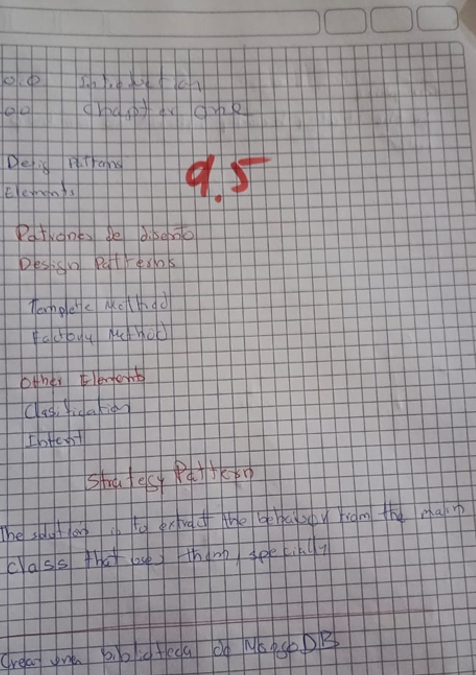 0.0 Introduction
00 Chapter one
Desig Pattrons
9.5
Elements
Patrones de diseño
Design Patterns
Template Method
Factory Method
Other Elements
Clasification
Intent
Strategy Pattern
The solution is to extract the behavior from the main
class that uses them, specially
Crear una biblioteca de MongoDB